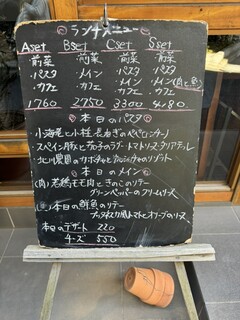 ランチメニュー
Aset Bset Cset Sset
前菜 前菜 前菜 前菜
パスタ メイン パスタ パスタ
カフェ カフェ メイン メイン(肉と魚)
カフェ カフェ
1760 2750 3300 4180
本日のパスタ
小海老と小柱、長ねぎのペペロンチーノ
スペイン豚となすのラグートマトソース タリアテッレ
北川農園のカボチャとのリゾット
本日のメイン
(肉)若鶏モモ肉ときのこのソテー
グリーンペッパーのクリームソース
本日の鮮魚のソテー
トマトとオリーブのソース
本日のデザート 220
チーズ 550